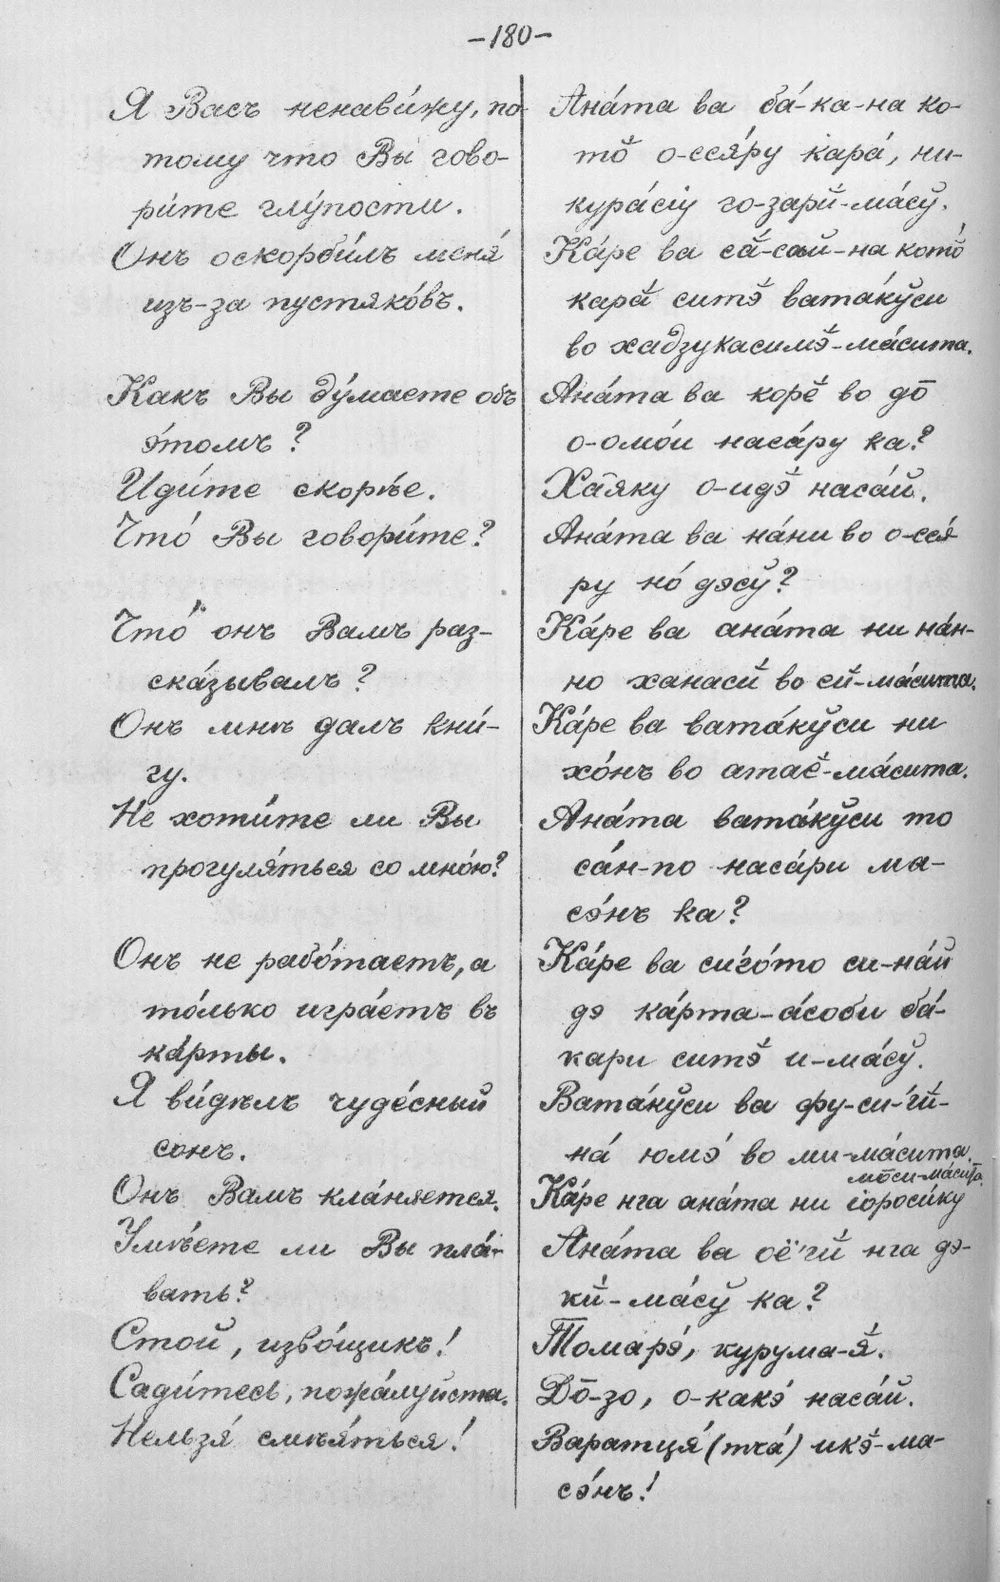 -180-
Я Васъ ненави́жу, по-
тому что Вы гово-
ри́те глу́пости.
Онъ оскорби́лъ меня́
изъ-за пустяко́въ.
Какъ Вы ду́маете объ
э́томъ?
Иди́те скорѣ́е.
Что́ Вы говори́те?
Что́ онъ Вамъ раз-
ска́зывалъ?
Онъ мнѣ далъ кни́-
гу.
Не хоти́те ли Вы
прогуля́ться со мно́ю?
Онъ не рабо́таетъ, а
то́лько игра́етъ въ
ка́рты.
Я ви́дѣлъ чуде́сный
сонъ.
Онъ Вамъ кла́няется.
Умѣ́ете ли Вы пла́-
вать?
Стой, изво́щикъ!
Сади́тесь, пожа́луйста.
Нельзя́ смѣя́ться!
Ана́та ва ба́-ка-на ко-
то̆ о-сся́ру кара́, ни-
кура́сіу го-зарй-ма́сў.
Ка́ре ва сӑ́-сай-на кото̆́
карӑ ситэ̆ вата́кўси
во хадзукасимэ̆-ма́сита.
Ана́та ва корĕ во до̄
о-омо́и наса́ру ка?
Ха̄яку о-идэ̆ наса́й.
Ана́та ва на́ни во о-сся́-
ру но́ дэсў?
Ка́ре ва ана́та ни на́н-
но ханасй во сй-ма́сита.
Ка́ре ва вата́кўси ни
хо́нъ во атаĕ-ма́сита.
Ана́та вата́кўси то
са́н-по наса́ри ма-
сэ́нъ ка?
Ка́ре ва сиго́то си-на́й
дэ ка́рта-а́соби ба́-
кари ситэ̆ и-ма́сў.
Вата́кўси ва фу-си-гй-
на́ юмэ́ во ми-ма́сита.
мо̄си-ма́сита.
Ка́ре нга ана́та ни іороси́ку
Ана́та ва оё'гй нга дэ-
кй-ма́сў ка?
Томарэ́, курума-я̆́.
До̄-зо, о-какэ́ наса́й.
Варатця́ (тча́) икэ̆-ма-
сэ́нъ!